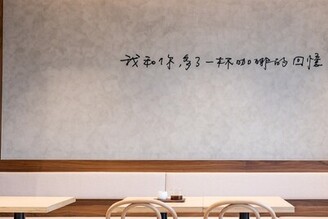 我和你,多了一杯咖啡的回憶